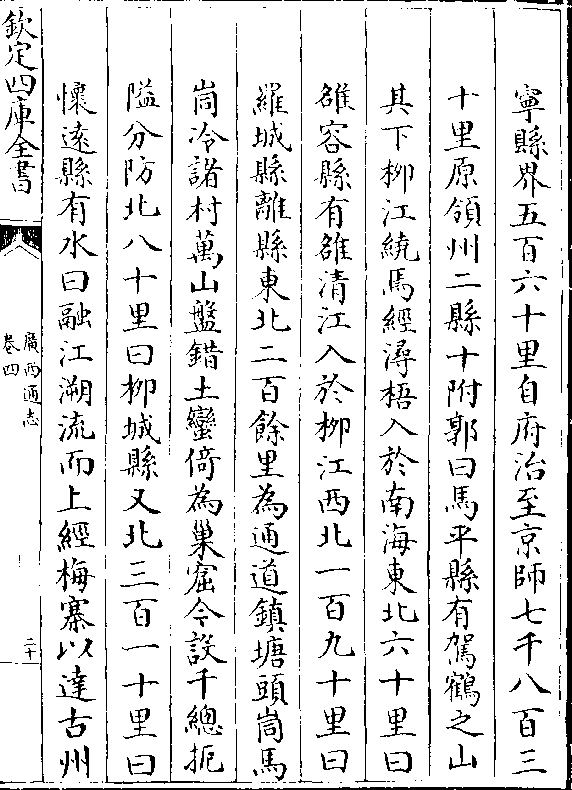 寧縣界五百六十里自府治至京師七千八百三
十里原領州二縣十附郭曰馬平縣有駕鶴之山
其下柳江繞焉經潯梧入於南海東北六十里曰
雒容縣有雒清江入於柳江西北一百九十里曰
羅城縣離縣東北二百餘里為通道鎮塘頭峝馬
峝冷諸村萬山盤錯土蠻倚為巢窟今設千總扼
隘分防北八十里曰柳城縣又北三百一十里曰
懷遠縣有水曰融江溯流而上經梅寨以達古州
欽定四庫全書
廣西通志
卷四
二十